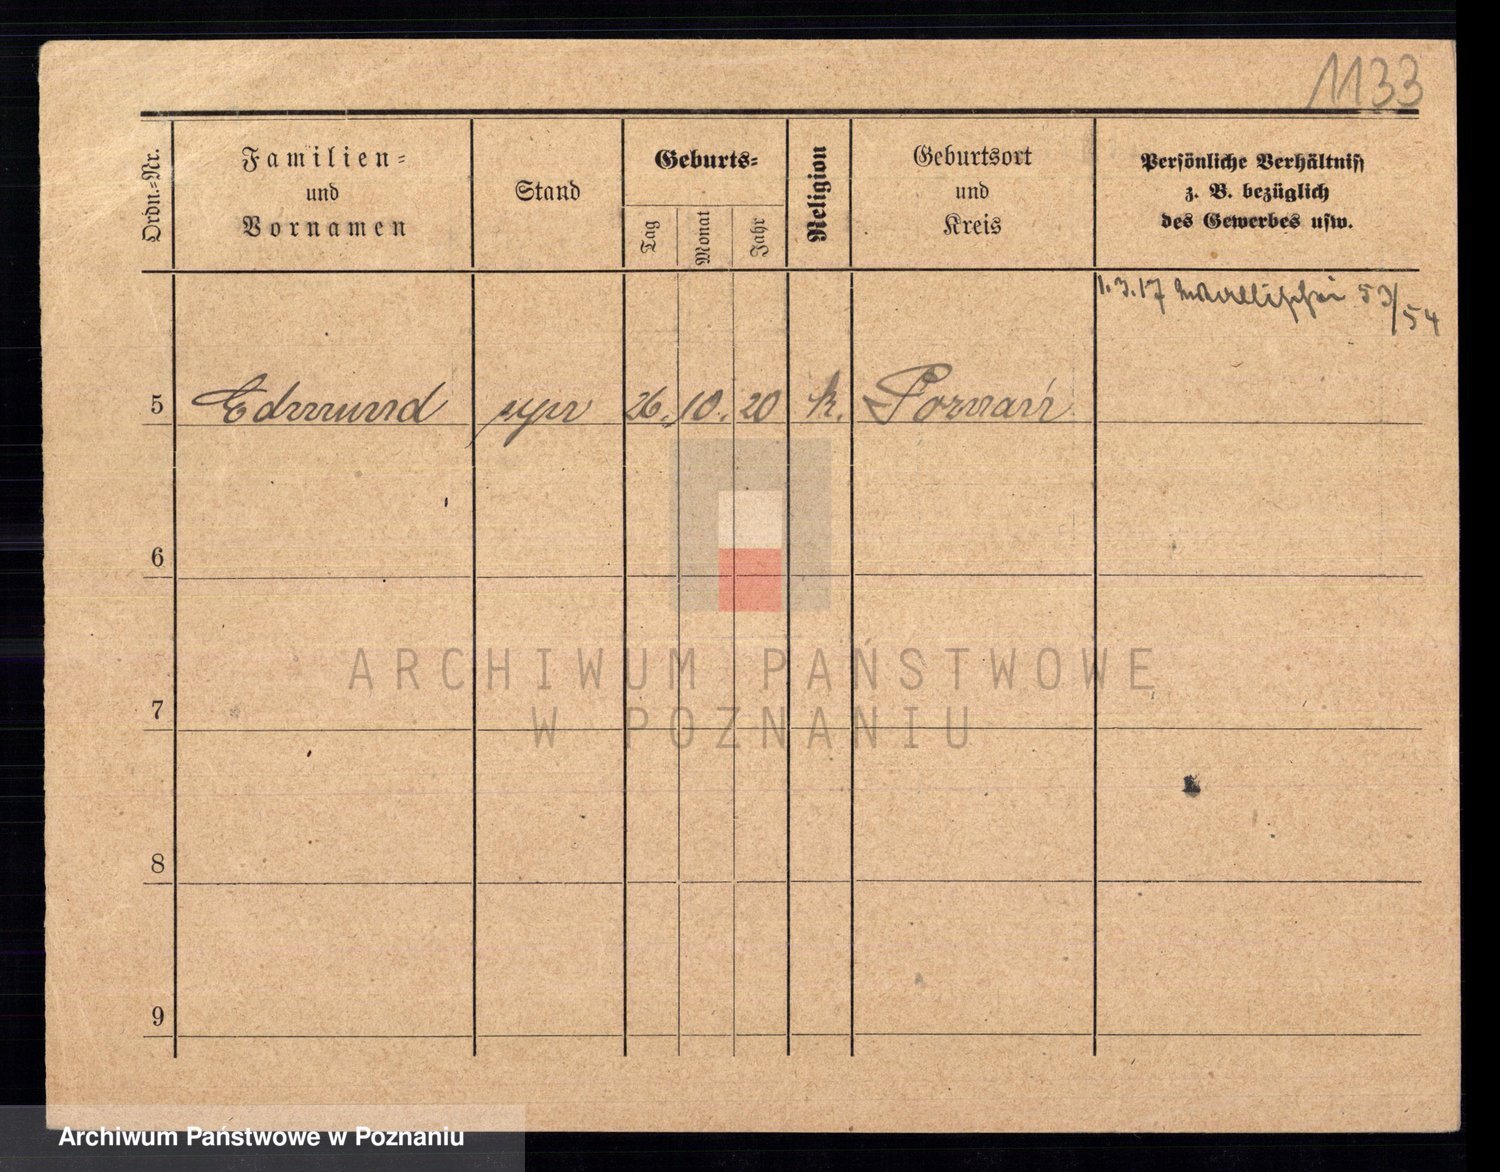 1133
Ordn.-Nr.
Familien-
und
Vornamen
Stand
Geburts-
Tag
Monat
Jahr
Religion
Geburtsort
und
Kreis
Persönliche Verhältniss
z. B. bezüglich
des Gewerbes usw.
1.3.17 Wallischei 53/54
5 Edmund syn 26. 10. 20 k. Poznań
6
7
8
9
ARCHIWUM PAŃSTWOWE
W POZNANIU
Archiwum Państwowe w Poznaniu